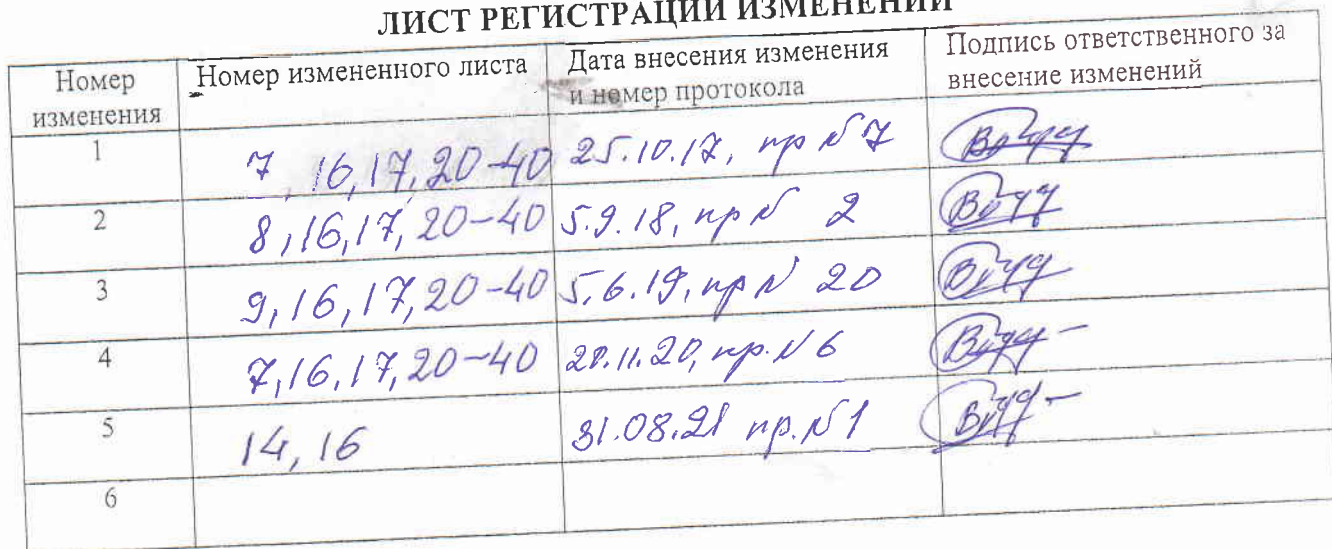 ЛИСТ РЕГИСТРАЦИИ ИЗМЕНЕНИЙ
Номер изменения
Номер измененного листа
Дата внесения изменения и номер протокола
Подпись ответственного за внесение изменений
1
7, 16, 17, 20-40
25.10.17, пр №7
2
8, 16, 17, 20-40
5.9.18, пр № 2
3
9, 16, 17, 20-40
5.6.19, пр № 20
4
7, 16, 17, 20-40
пр. №6
5
14, 16
31.08.21 пр. №1
6